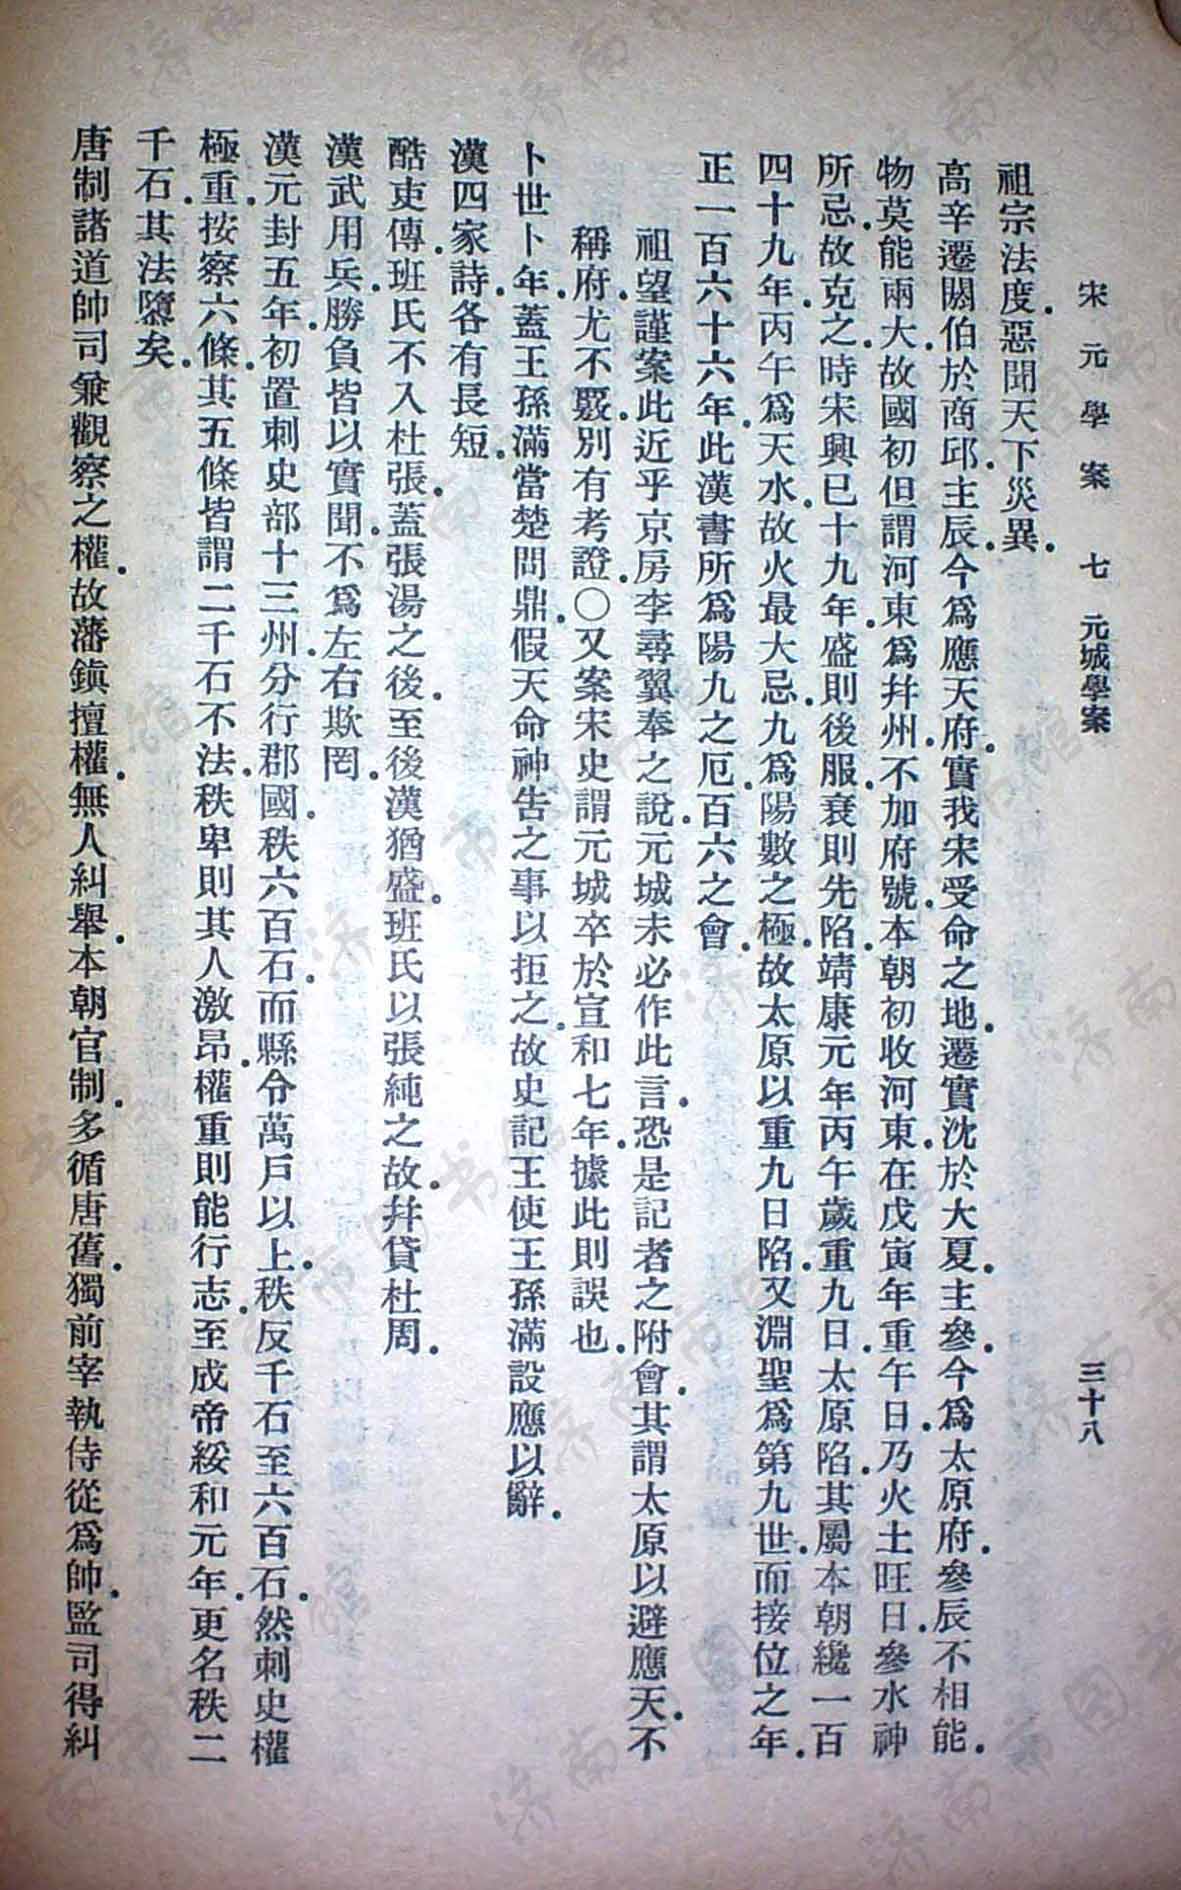 宋元學案 七 元城學案 三十八
祖宗法度惡聞天下災異
高辛遷閼伯於商邱主辰今爲應天府實我宋受命之地遷實沈於大夏主參今爲太原府參辰不相能
物莫能兩大故國初但謂河東爲幷州不加府號本朝初收河東在戊寅年重午日乃火土旺日參水神
所忌故克之時宋興已十九年盛則後服衰則先陷靖康元年丙午歲重九日太原陷其屬本朝纔一百
四十九年丙午爲天水故火最大忌九爲陽數之極故太原以重九日陷又淵聖爲第九世而接位之年
正一百六十六年此漢書所爲陽九之厄百六之會
祖望謹案此近乎京房李尋翼奉之說元城未必作此言恐是記者之附會其謂太原以避應天不
稱府尤不覈別有考證○又案宋史謂元城卒於宣和七年據此則誤也
卜世卜年蓋王孫滿當楚問鼎假天命神告之事以拒之故史記王使王孫滿設應以辭
漢四家詩各有長短
酷吏傳班氏不入杜張蓋張湯之後至後漢猶盛班氏以張純之故幷貸杜周
漢武用兵勝負皆以實聞不爲左右欺罔
漢元封五年初置刺史部十三州分行郡國秩六百石而縣令萬戶以上秩反千石至六百石然刺史權
極重按察六條其五條皆謂二千石不法秩卑則其人激昂權重則能行志至成帝綏和元年更名秩二
千石其法隳矣
唐制諸道帥司兼觀察之權故藩鎭擅權無人糾舉本朝官制多循唐舊獨前宰執侍從爲帥監司得糾